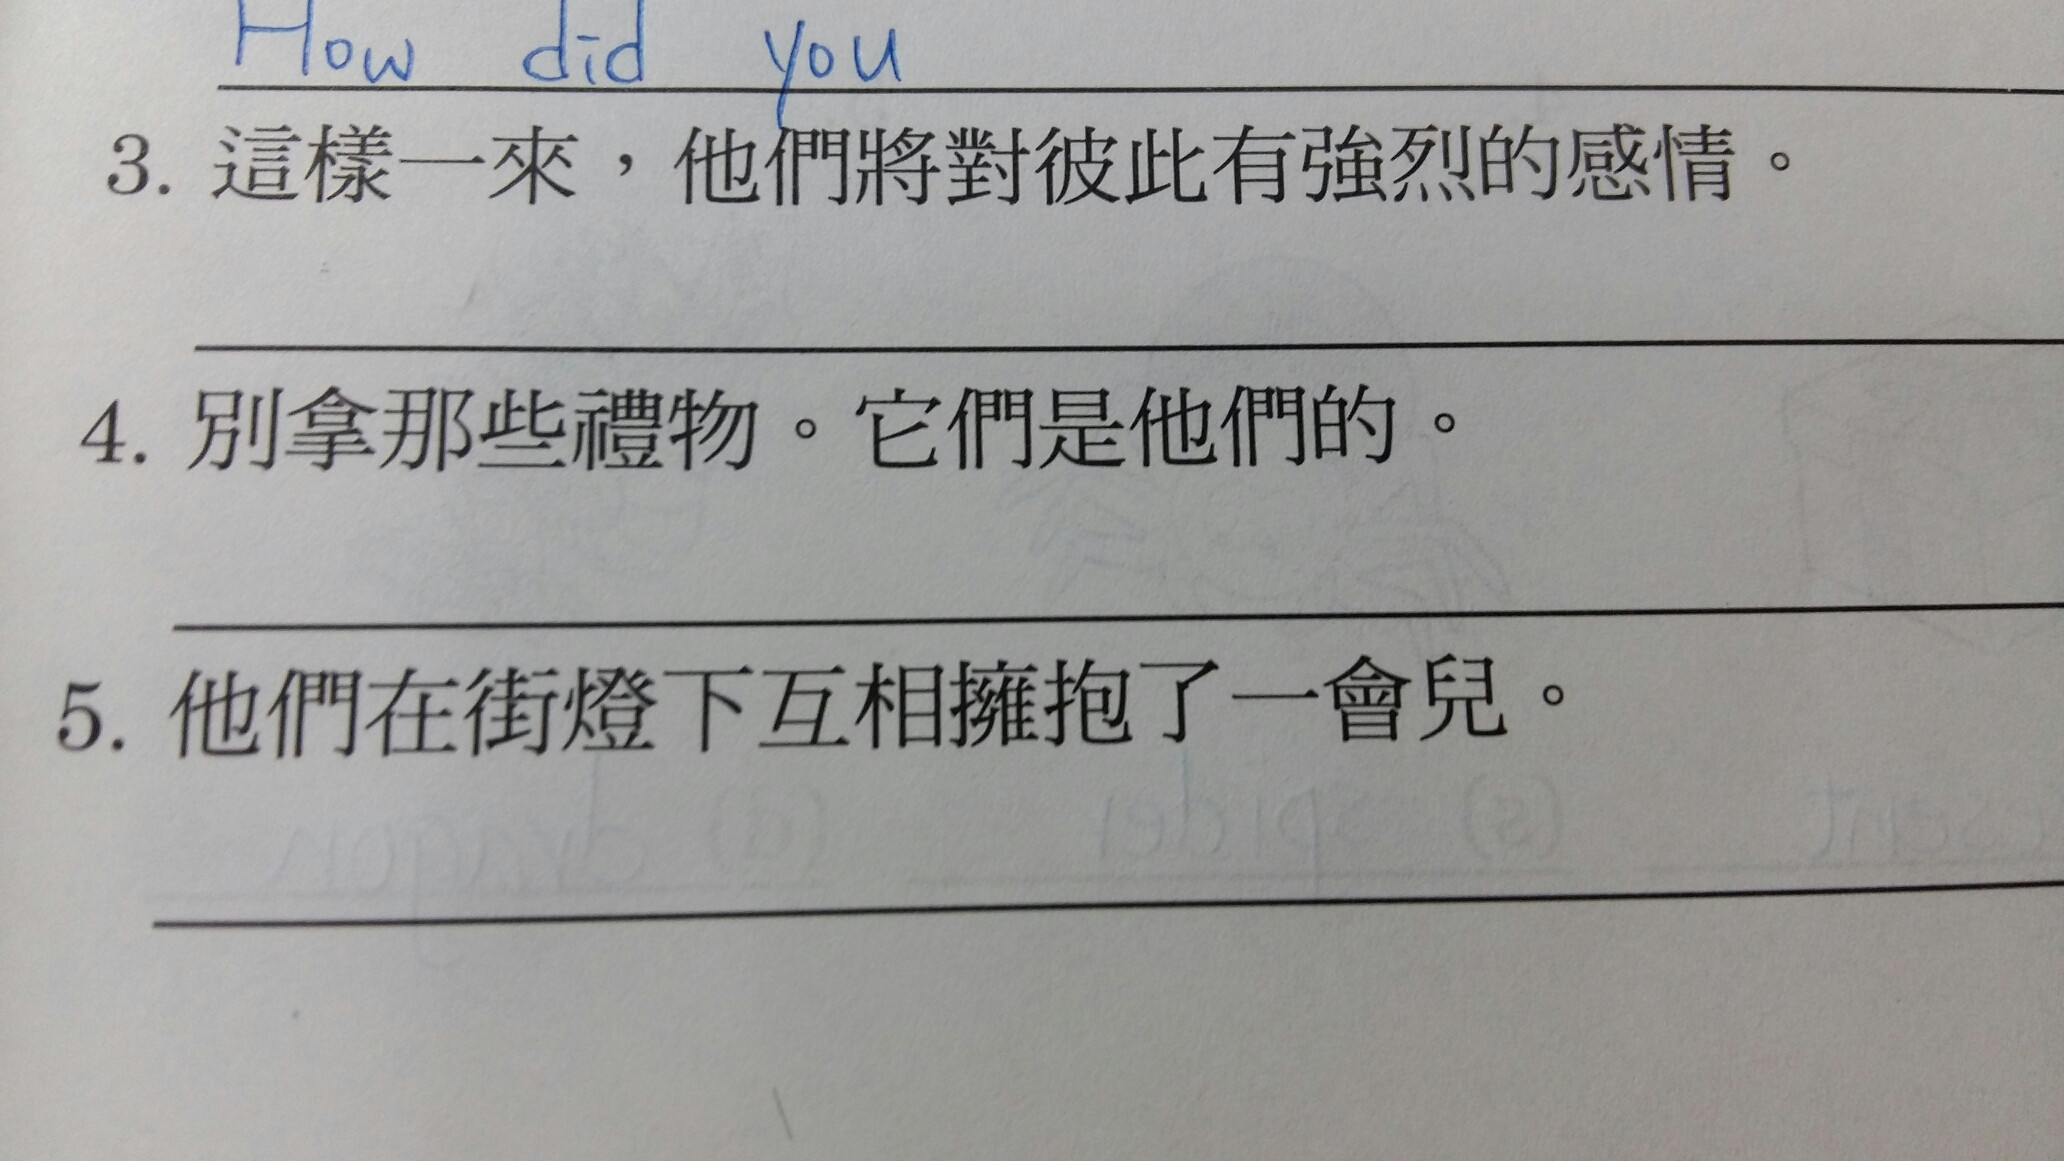 How did you
3. 這樣一來，他們將對彼此有強烈的感情。
4. 別拿那些禮物。它們是他們的。
5. 他們在街燈下互相擁抱了一會兒。